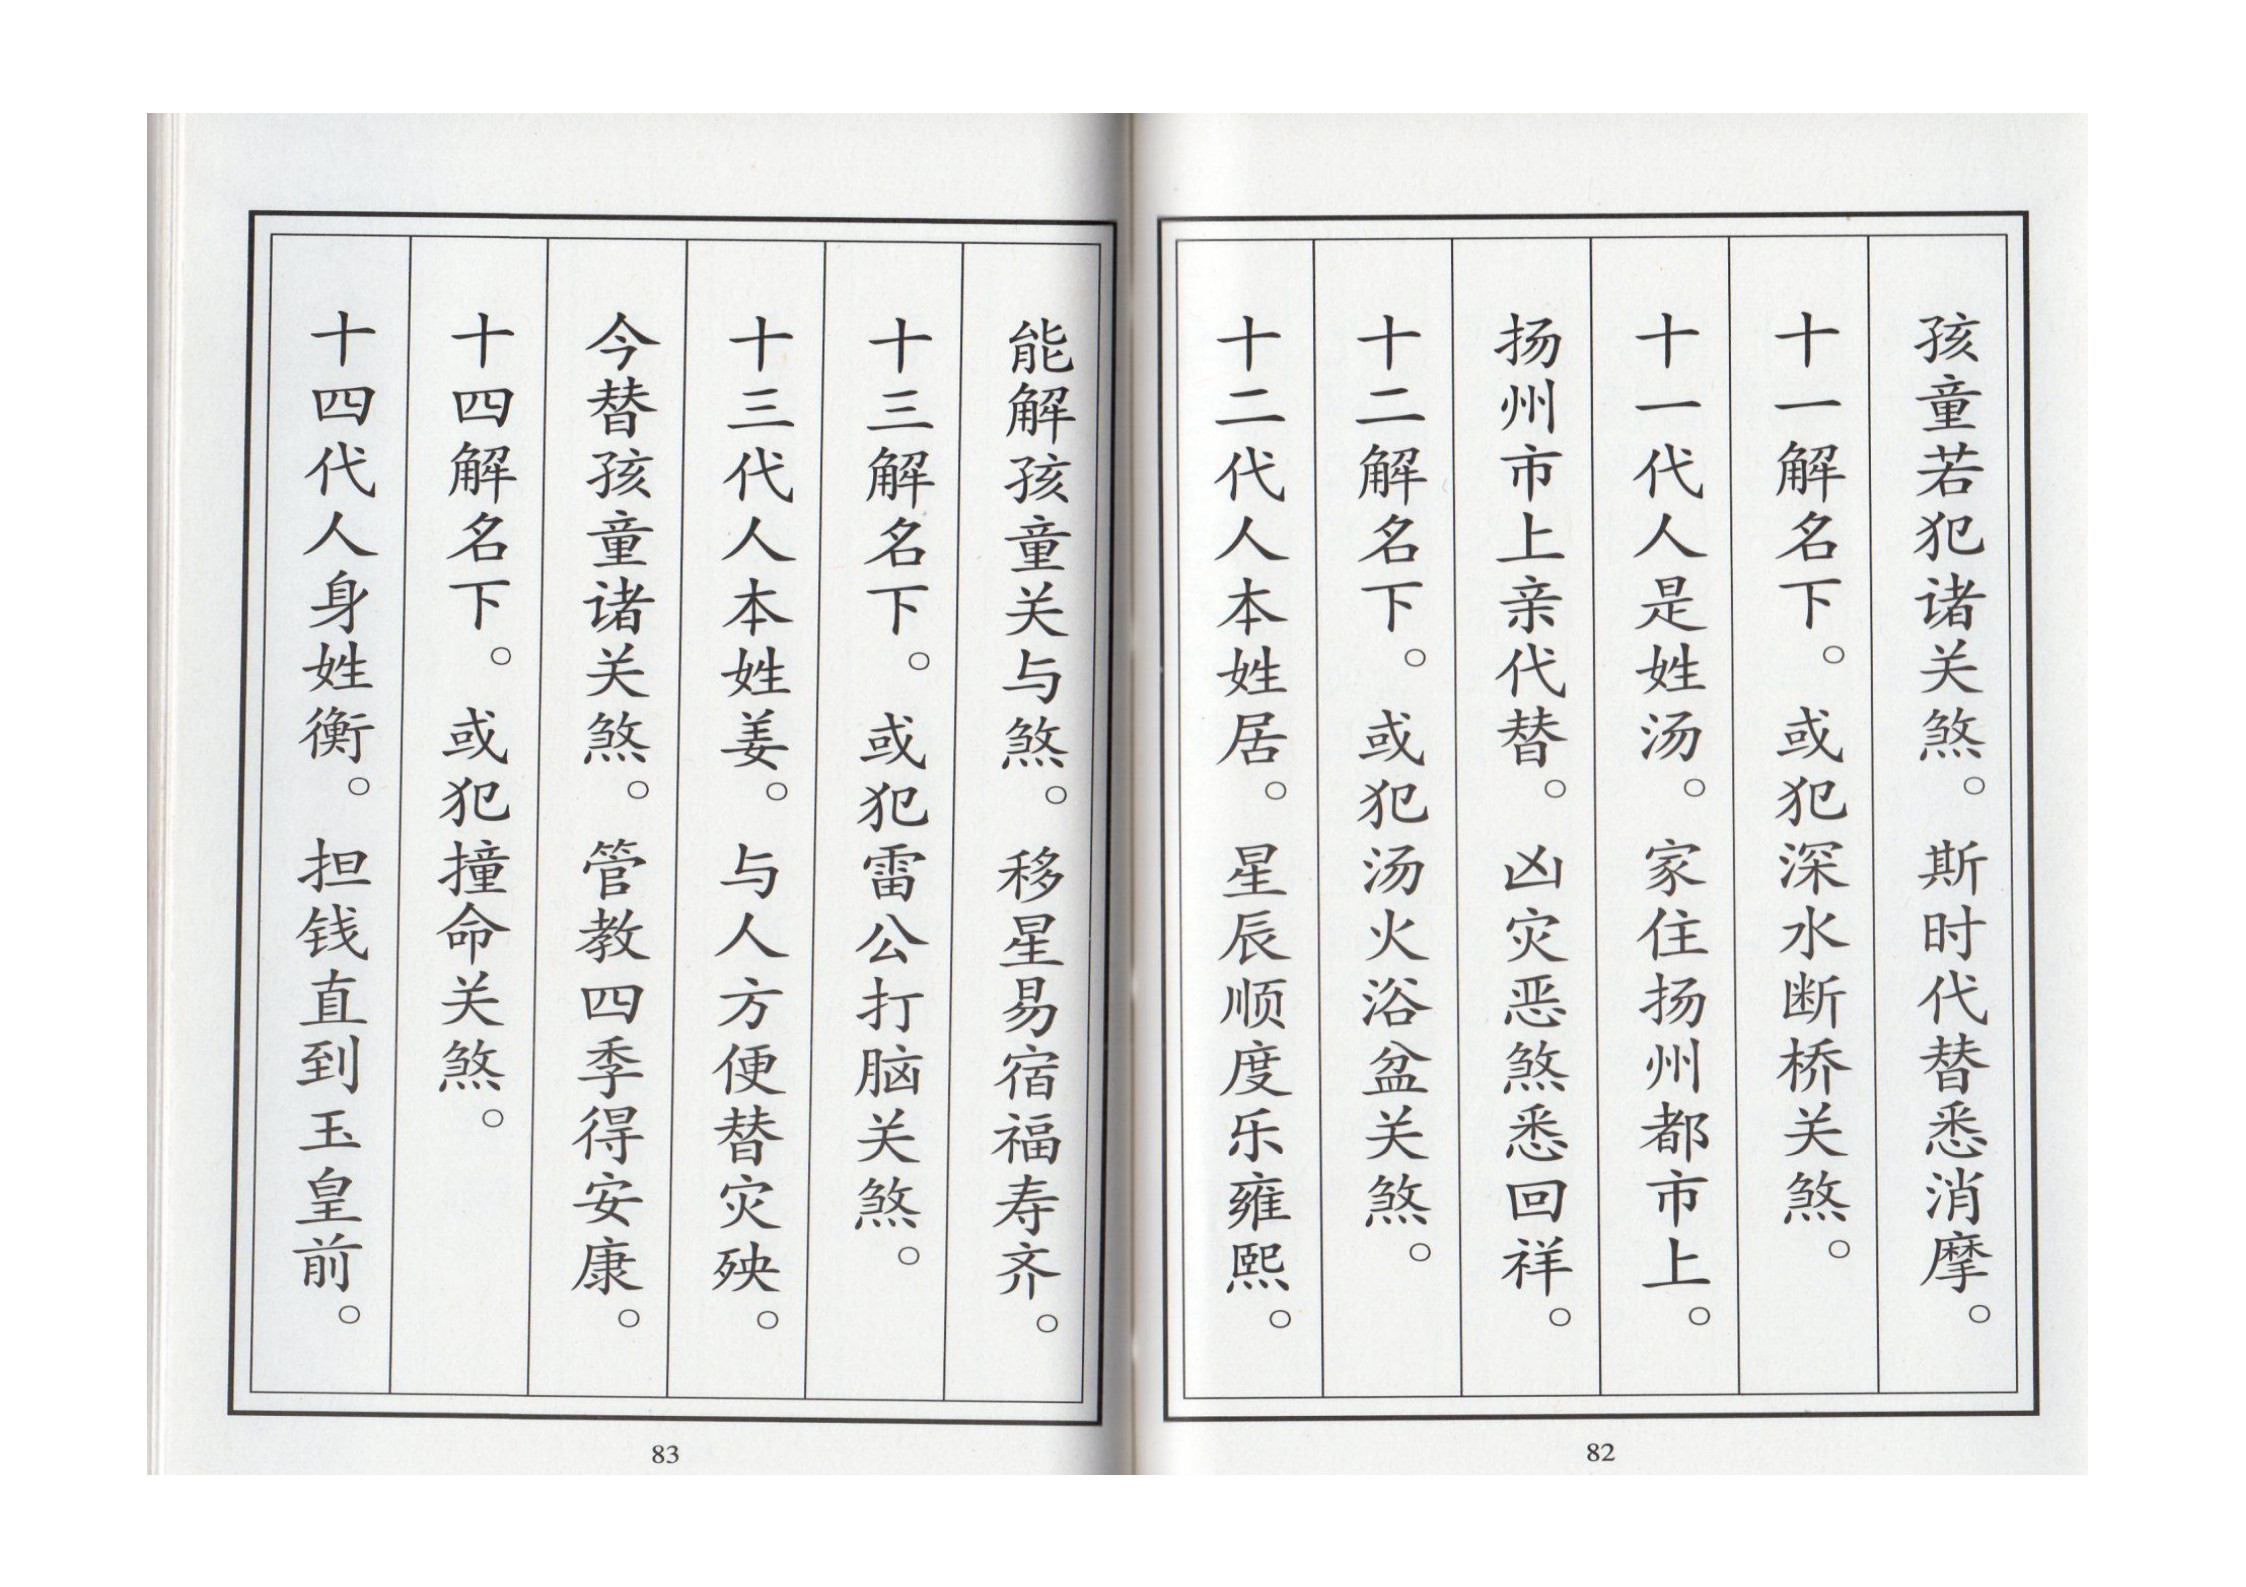 孩童若犯诸关煞。斯时代替悉消摩。
十一解名下。或犯深水断桥关煞。
十一代人是姓汤。家住扬州都市上。
扬州市上亲代替。凶灾恶煞悉回祥。
十二解名下。或犯汤火浴盆关煞。
十二代人本姓居。星辰顺度乐雍熙。
82
能解孩童关与煞。移星易宿福寿齐。
十三解名下。或犯雷公打脑关煞。
十三代人本姓姜。与人方便替灾殃。
今替孩童诸关煞。管教四季得安康。
十四解名下。或犯撞命关煞。
十四代人身姓衡。担钱直到玉皇前。
83